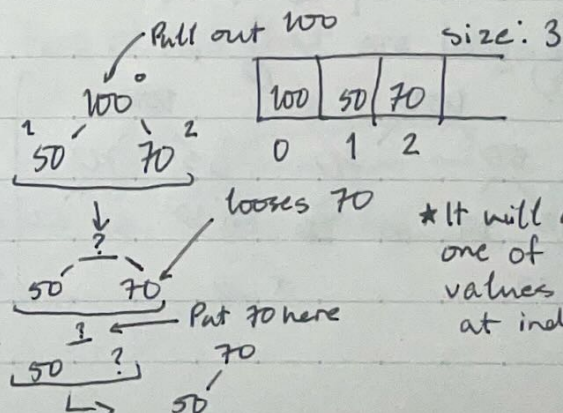 Pull out 100
size: 3
100 0
1 50 70 2
100 50 70
0 1 2
looses 70
?
50 70
* It will
one of
values
at
Put 70 here
?
50 ?
70
50